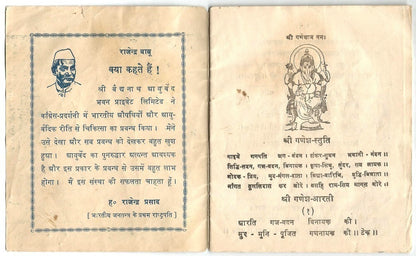 राजेन्द्र बाबू
क्या कहते हैं !
श्री बैद्यनाथ आयुर्वेद
भवन प्राइवेट लिमिटेड ने
कथित-प्रदर्शनी में भारतीय औषधियों और आयु-
र्वेदिक रीति से चिकित्सा का प्रबन्ध किया। मैंने
उसे देखा और सब प्रबन्ध को देखकर बहुत खुश
हुआ। आयुर्वेद का पुनरुद्धार अत्यन्त आवश्यक
है और इस प्रकार के प्रबन्ध से उसमें बहुत लाभ
होगा। मैं इस संस्था की सफलता चाहता हूँ।
ह० राजेन्द्र प्रसाद
[ भारतीय जनतन्त्र के प्रथम राष्ट्रपति ]
श्री गणेशाय नमः
श्री गणेश-स्तुति
गाइये गणपति जग-वंदन। शंकर-सुवन भवानी-नंदन॥
सिद्धि-सदन, गज-वदन, विनायक। कृपा-सिन्धु, सुंदर, सब लायक॥
मोदक-प्रिय, मुद-मंगल-दाता। विद्या-वारिधि, बुद्धि-विधाता॥
माँगत तुलसिदास कर जोरे। बसहिं राम-सिय मानस मोरे॥
श्री गणेश-आरती
(१)
आरति गज-वदन विनायक की।
सुर-मुनि-पूजित गणनायक की॥टेक॥